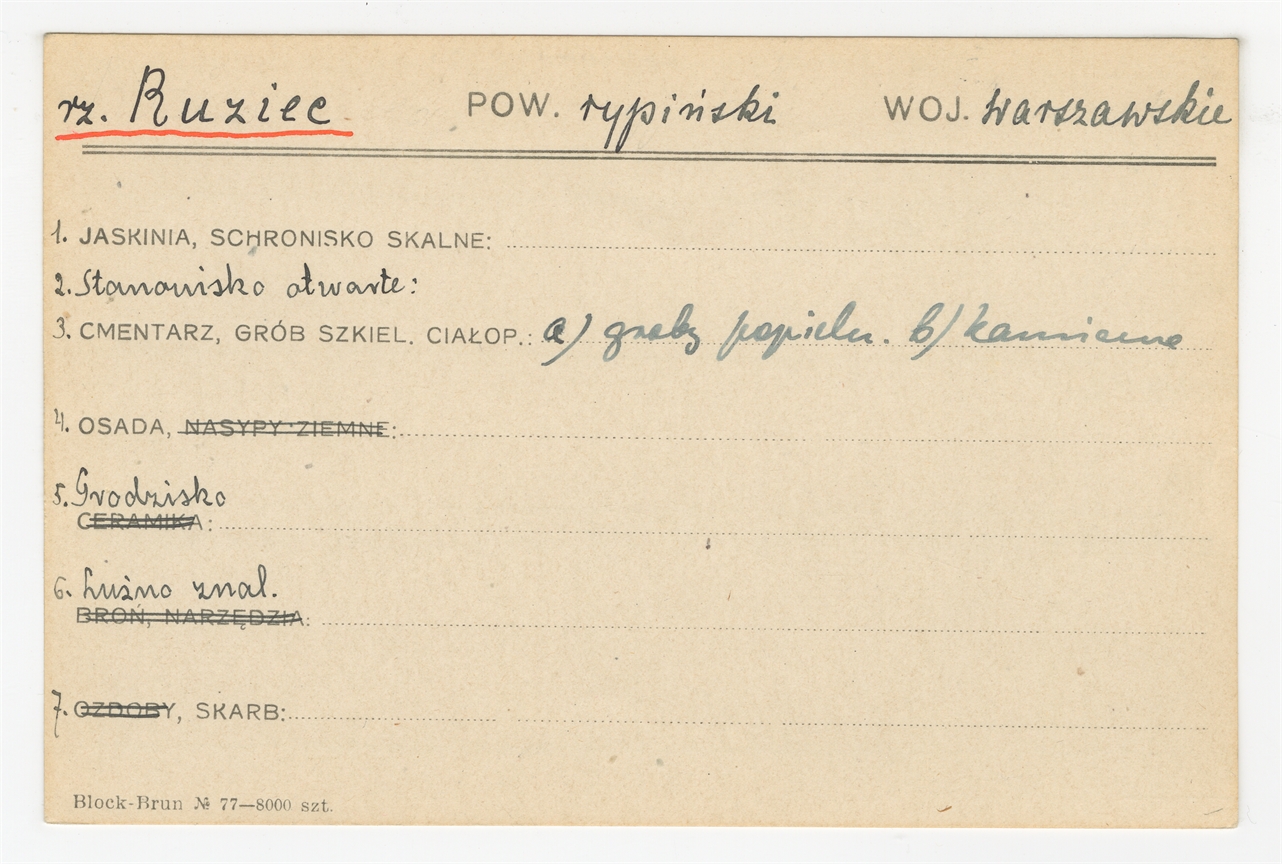 rz. Ruziec POW. rypiński WOJ. warszawskie
1. JASKINIA, SCHRONISKO SKALNE:
2. Stanowisko otwarte:
3. CMENTARZ, GRÓB SZKIEL. CIAŁOP.: a) groby popieln. b) kamienne
4. OSADA, NASYPY ZIEMNE:
5. Grodzisko
CERAMIKA:
6. Luźno znal.
BROŃ, NARZĘDZIA:
7. OZDOBY, SKARB:
Block-Brun № 77—8000 szt.